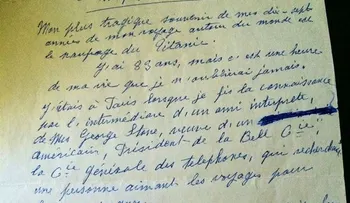 Mon plus tragique souvenir de mes dix-sept
années de mon voyage autour du monde est
le naufrage du Titanic.
J'ai 83 ans, mais c'est une heure
de ma vie que je n'oublierai jamais.
J'étais à Paris lorsque je fis la connaissance
par l'intermédiaire d'un ami interprète,
de Mrs George Stone, veuve d'un
américain, Président de la Bell Cie,
la Cie Générale des telephones, qui recherchait
une personne aimant les voyages pour